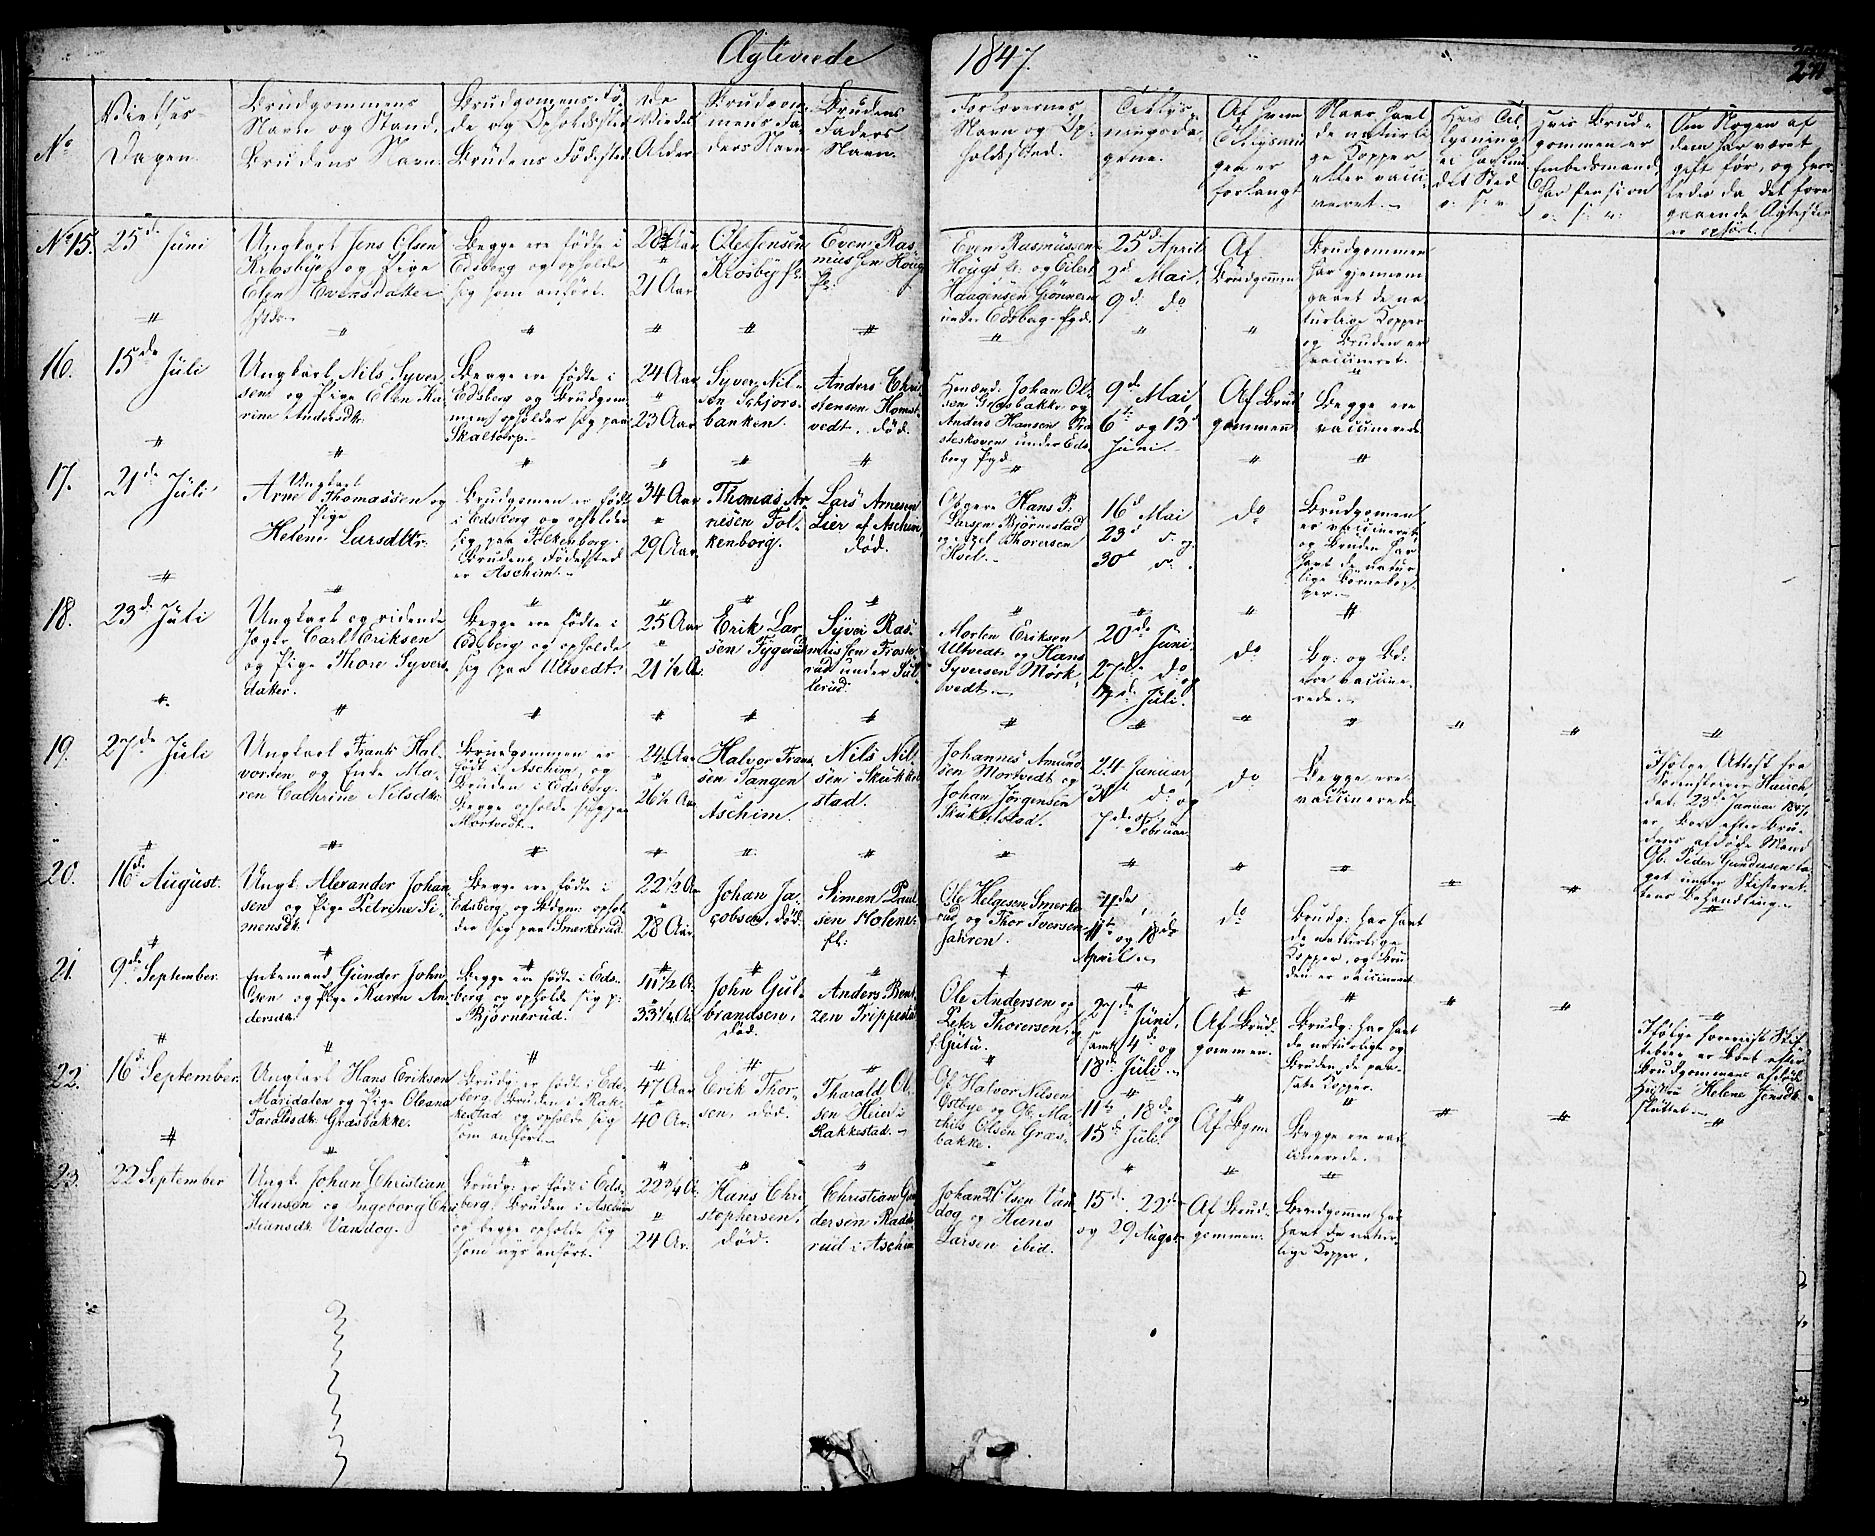 Ægteviede 1847.
No
Vielses-
Dagen.
Brudgommens
Navn og Stand,
Brudens Navn.
Brudgomens Fø-
de og Opholdssted
Brudens Fødested
De
Viedes
Alder
Brudgom-
mens Fa-
ders Navn
Brudens
Faders
Navn.
Forlovernes
Navn og Op-
holdssted.
Tillys-
ningsda-
gene.
Af hvem
Tillysnin-
gen er
forlangt
Naar havt
de naturli-
ge Kopper
eller vacci-
neret.
Hvis Brud-
gommen er
Embedsmand,
har Pension
Om Nogen af
dem har været
gift før, og hvor-
ledes da det fore-
gaaende Ægteskab
er ophørt.
No 15.
25de Juni
Ungkarl Jens Olsen
Krosbye og Pige
Elen Evensdatter
Begge ere fødte i
Edsberg og opholde
sig som anført.
21 Aar
Ole Jensen
Krosby
Even Ras-
mussen Houg
Even Rasmussen
Houg og Eilert
Haagensen Grønnern
under Edsberg Pgd.
25de April
2d Mai
9d do
Af
Brudgommen
Brudgommen
har gjennem-
gaaet de na-
turlige Kopper
og Bruden er
vaccineret.
16.
15de Juli
Ungkarl Nils Syver-
sen og Pige Elen Ka-
rine Andersdtr.
Begge ere fødte i
Edsberg og Brudgom-
men opholder sig paa
Skaltorp.
24 Aar
23 Aar
Syver Nil-
sen Schjors-
banken.
Anders Chri-
stensen Homst-
vedt, død.
Johan Ol-
sen Græsbakke og
Anders Hansen
under Eds-
berg Pgd.
9de Mai,
6te og 13de
Juni.
Af Brud-
gommen
Begge ere
vaccinerede
17.
21de Juli
Ungkarl
Arne Thomassen og
Pige
Helene Larsdtr.
Brudgomen er født
i Edsberg og opholder
sig paa Folkenborg.
Brudens Fødested
er Aschim.
34 Aar
29 Aar.
Thomas Ar-
nesen Fol-
kenborg.
Lars Arnesen
Lier af Aschim
død.
Hans P.
Larsen Bjørnestad
og Axel Thoresen
Hoel.
16d Mai
23d
30te
do
Brudgomen
er vaccineret,
og Bruden har
havt de natur-
lige Børnekop-
per.
18.
23d Juli
Ungkarl og ridende
Jæger Carl Eriksen
og Pige Thore Syvers-
datter.
Begge ere fødte i
Edsberg og opholde
sig paa Ultvedt.
25 Aar
21 1/2 A.
Erik Lar-
sen
Syver Ras-
mussen Froste-
rud under
Morten Eriksen
Ultvedt og Hans
Syversen Mørk-
vedt.
20de Juni,
27de do og
Juli.
do
Bg: og Bd:
ere vaccine-
rede.
19.
27de Juli
Ungkarl Frants Hal-
vorsen og Enke Ma-
ren Cathrine Nilsdtr.
Brudgommen er
født i Aschim, og
Bruden i Edsberg.
Begge opholde sig paa
Mortvedt.
24 Aar
26 1/2 Aar
Halvor Frans-
sen Tangen
Aschim.
Nils Nil-
sen Skukkel-
stad.
Johannes Amund-
sen Mortvedt og
Johan Jørgensen
Skukkelstad.
24 Januar,
31te do og
7de Februar.
do
Begge ere
vaccinerede
Ifølge Attest fra
Sorenskriver Hauch
det. 23d Januar 1847
er Boet efter Bru-
dens afdøde Mand
Peder Gundersen ta-
get under Skifteret-
tens Behandling.
20.
16de August.
Ungk. Alexander Johan-
sen og Pige Petrine Si-
mensdtr.
Begge ere fødte i
Edsberg og Bdgm: ophol-
der sig paa Smerkerud
22 1/2 Aar
28 Aar.
Johan Ja-
cobsen, død.
Simen Poul-
sen Holene
Ole Helgesen Smerke-
rud og Thor Iversen
Jahren.
11te og 18de
April.
do
Brudg: har havt
de naturlige
Kopper, og Bru-
den er vaccineret
21.
9de September.
Enkemand Gunder John-
Olsen og Pige Karen An-
dersdtr.
Begge ere fødte i Eds-
berg og opholde sig p:
Bjørnerud.
41 1/2 A.
33 1/4 Aar
John Gul-
brandsen,
død.
Anders Bent-
zen Trippestad
Ole Andersen og
Peter Thoresen,
Gutu.
27de Juni,
samt 4de og
18de Juli.
Af Brud-
gommen.
Brudg: har havt
de naturlige og
Bruden de paa-
satte Kopper.
Ifølge foreviist Skif-
tebrev er Boet efter
Brudgommens afdøde
Hustru Helene Jensdtr
sluttet.
22.
16de September.
Ungkarl Hans Eriksen
Maridalen og Pige Oleana
Taraldsdtr. Græsbakke.
Brudg: er født i Eds-
berg, Bruden i Rak-
kestad og opholde sig
som anført.
47 Aar
40 Ar.
Erik Thor-
sen, død.
Tharald Ol-
sen Heier i
Rakkestad.
Halvor Nilsen
Østbye og Ma-
this Olsen Græs-
bakke.
11te, 18de og
15d Juli.
Af Bgm.
Begge ere vac-
cinerede.
23.
22 September
Ungk. Johan Christian
Hansen og Ingeborg Chri-
stiansdtr. Vandog.
Brudg: er født i Eds-
berg, Bruden i Aschim
og begge opholde sig
som nys anført.
22 3/4 A.
24 Ar.
Hans Chri-
stophersen,
død.
Christian Gun-
dersen Rads-
rud i Aschim
Johan Olsen Van-
dog og Hans
Larsen ibid.
15d, 22d
og 29 August
Af Brud-
gommen.
Brudgomen har
havt de natur-
lige Kopper.